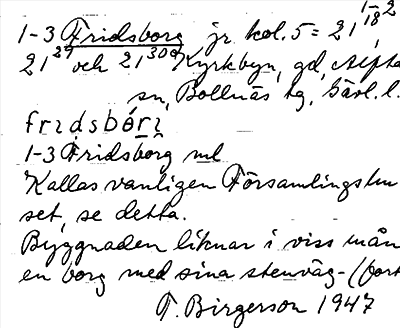 1-3 Fridsborg jr kol. 5 = 21 1-2 18
21 29 och 21 30a Kyrkbyn, gd, Alfta
sn, Bollnäs tg, Gävl. l.
fridsbórj
1-3 Fridsborg ml
Kallas vanligen Församlingshu
set, se detta.
Byggnaden liknar i viss mån
en borg med sina stenväg- (fort
T. Birgerson 1947